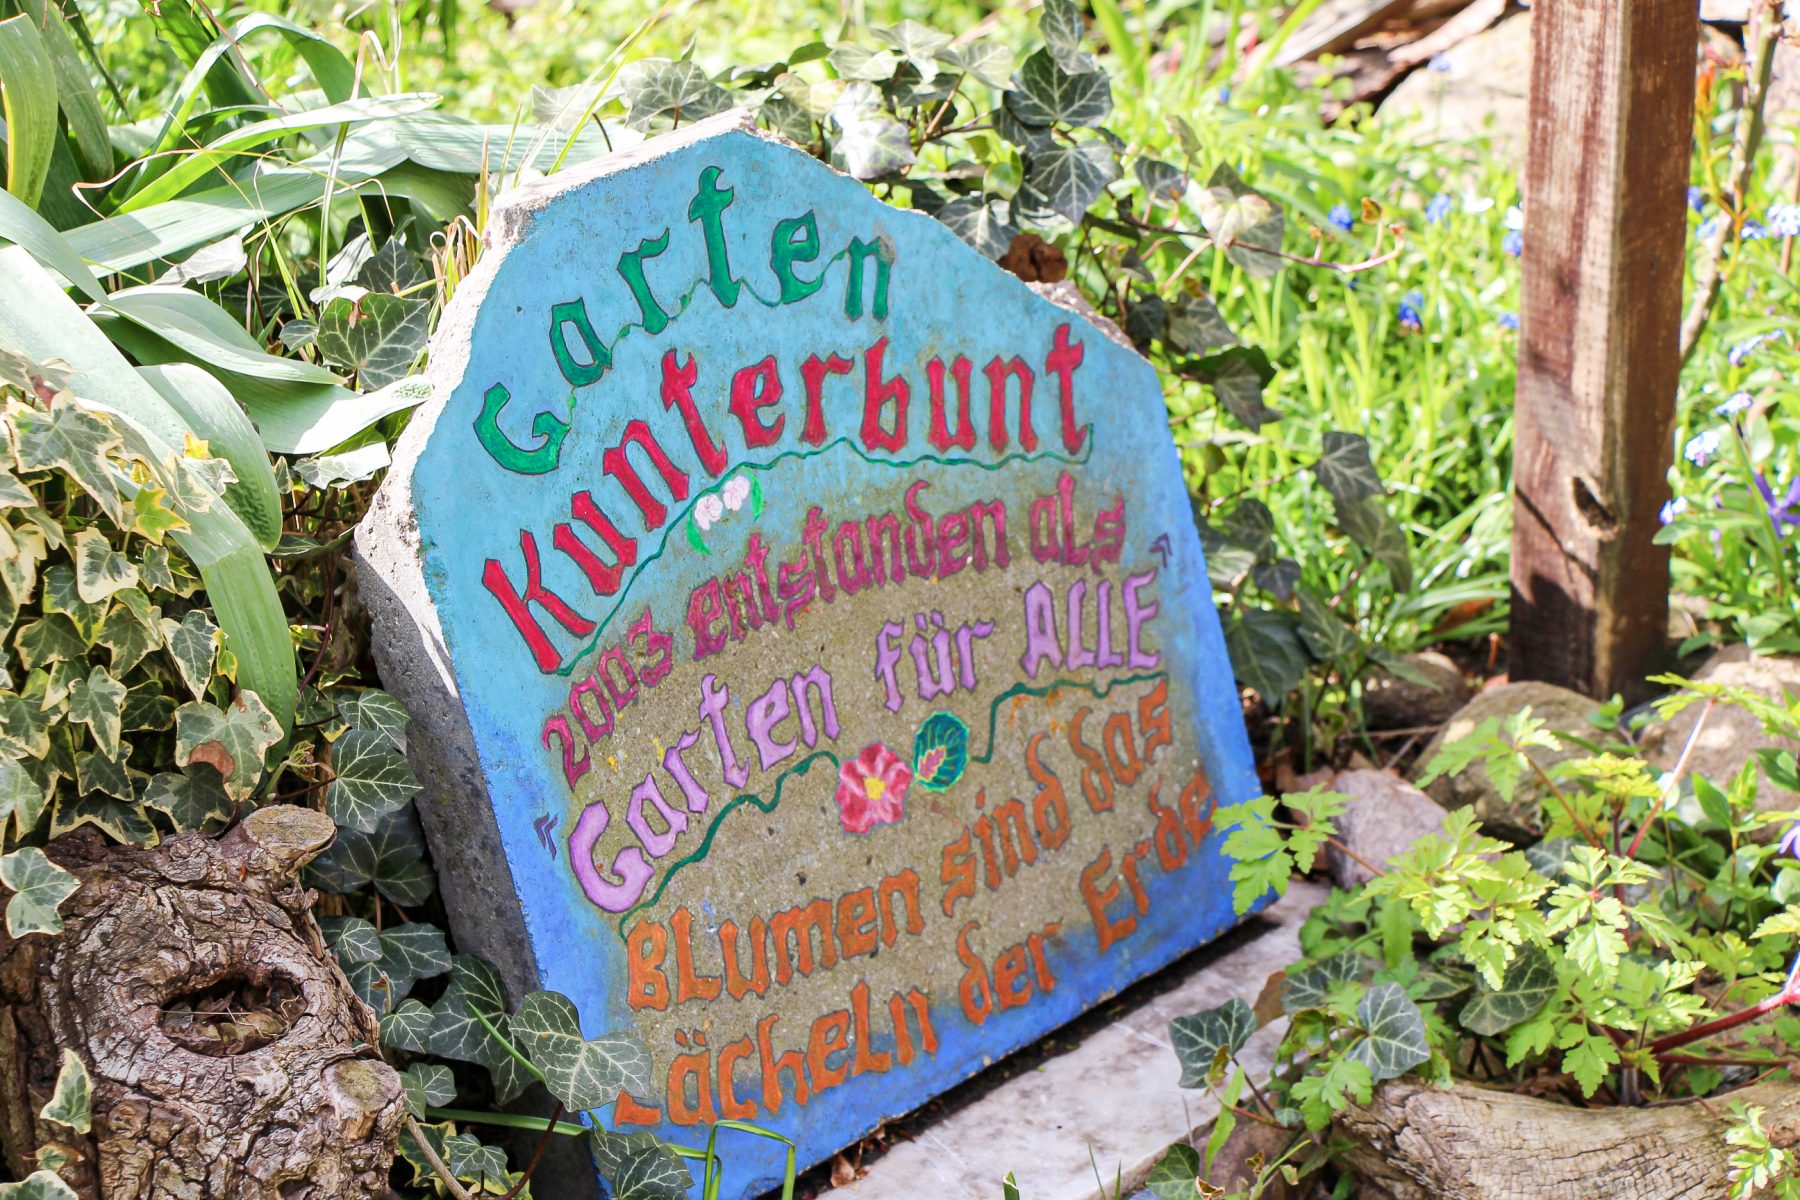 Garten
Kunterbunt
2003 entstanden als
"Garten für ALLE"
Blumen sind das
Lächeln der Erde